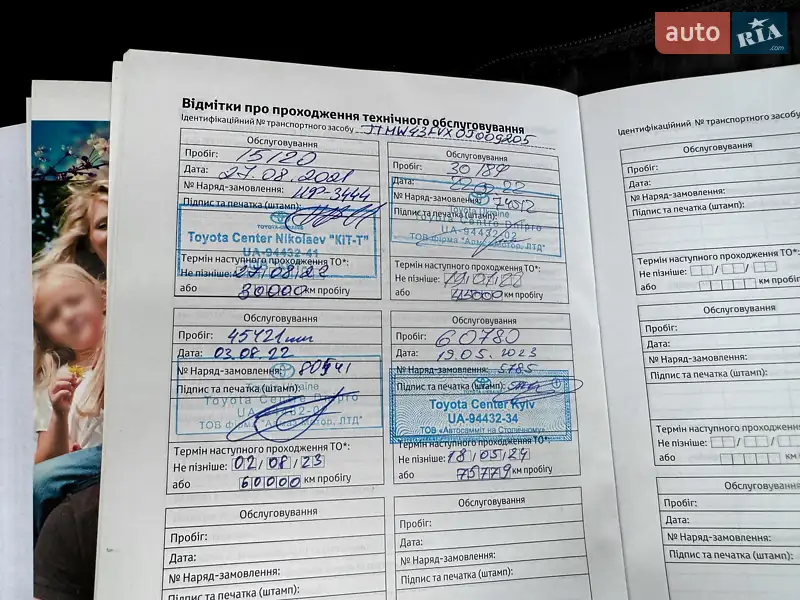 auto RIA .com
Відмітки про проходження технічного обслуговування
Ідентифікаційний № транспортного засобу JTMW43FVX0J009205
Обслуговування
Пробіг: 15120
Дата: 27.08.2021
№ Наряд-замовлення:
Підпис та печатка (штамп):
Toyota Center Nikolaev "КІТ-Т"
UA-94432-41
Термін наступного проходження ТО*:
Не пізніше: 27/08/22
або 30000 км пробігу
Обслуговування
Пробіг: 30189
Дата:
№ Наряд-замовлення: 74012
Підпис та печатка (штамп):
Toyota Centre Dnipro
UA-94432-02
Термін наступного проходження ТО*:
Не пізніше:
або 45000 км пробігу
Обслуговування
Пробіг: 45421
Дата: 03.08.22
№ Наряд-замовлення: 80541
Підпис та печатка (штамп):
Toyota Centre Dnipro
Термін наступного проходження ТО*:
Не пізніше: 02/08/23
або 60000 км пробігу
Обслуговування
Пробіг: 60780
Дата: 19.05.2023
№ Наряд-замовлення: 5785
Підпис та печатка (штамп):
Toyota Center Kyiv
UA-94432-34
ТОВ «Автосамміт на Столичному»
Термін наступного проходження ТО*:
Не пізніше: 18/05/24
або 75779 км пробігу
Обслуговування
Пробіг:
Дата:
№ Наряд-замовлення:
Підпис та печатка (штамп):
Обслуговування
Пробіг:
Дата:
№ Наряд-замовлення:
Підпис та печатка (штамп):
Ідентифікаційний № транспортного засобу
Обслуговування
Пробіг:
Дата:
№ Наряд-замовлення:
Підпис та печатка (штамп):
Термін наступного проходження ТО*:
Не пізніше:
або км пробігу
Обслуговування
Пробіг:
Дата:
№ Наряд-замовлення:
Підпис та печатка (штамп):
Термін наступного проходження ТО*:
Не пізніше:
або км пробігу
Обслуговування
Пробіг:
Дата:
№ Наряд-замовлення:
Підпис та печатка (штамп):